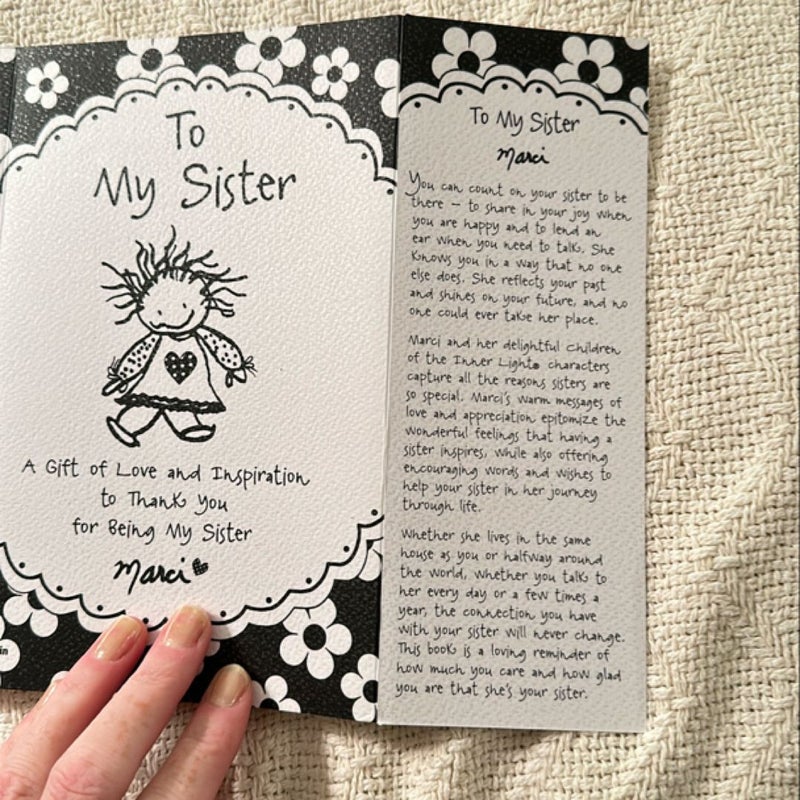 To
My Sister
A Gift of Love and Inspiration
to Thank You
for Being My Sister
Marci
in
To My Sister
Marci
You can count on your sister to be
there — to share in your joy when
you are happy and to lend an
ear when you need to talk. She
knows you in a way that no one
else does. She reflects your past
and shines on your future, and no
one could ever take her place.
Marci and her delightful Children
of the Inner Light® characters
capture all the reasons sisters are
so special. Marci's warm messages of
love and appreciation epitomize the
wonderful feelings that having a
sister inspires, while also offering
encouraging words and wishes to
help your sister in her journey
through life.
Whether she lives in the same
house as you or halfway around
the world, whether you talk to
her every day or a few times a
year, the connection you have
with your sister will never change.
This book is a loving reminder of
how much you care and how glad
you are that she's your sister.